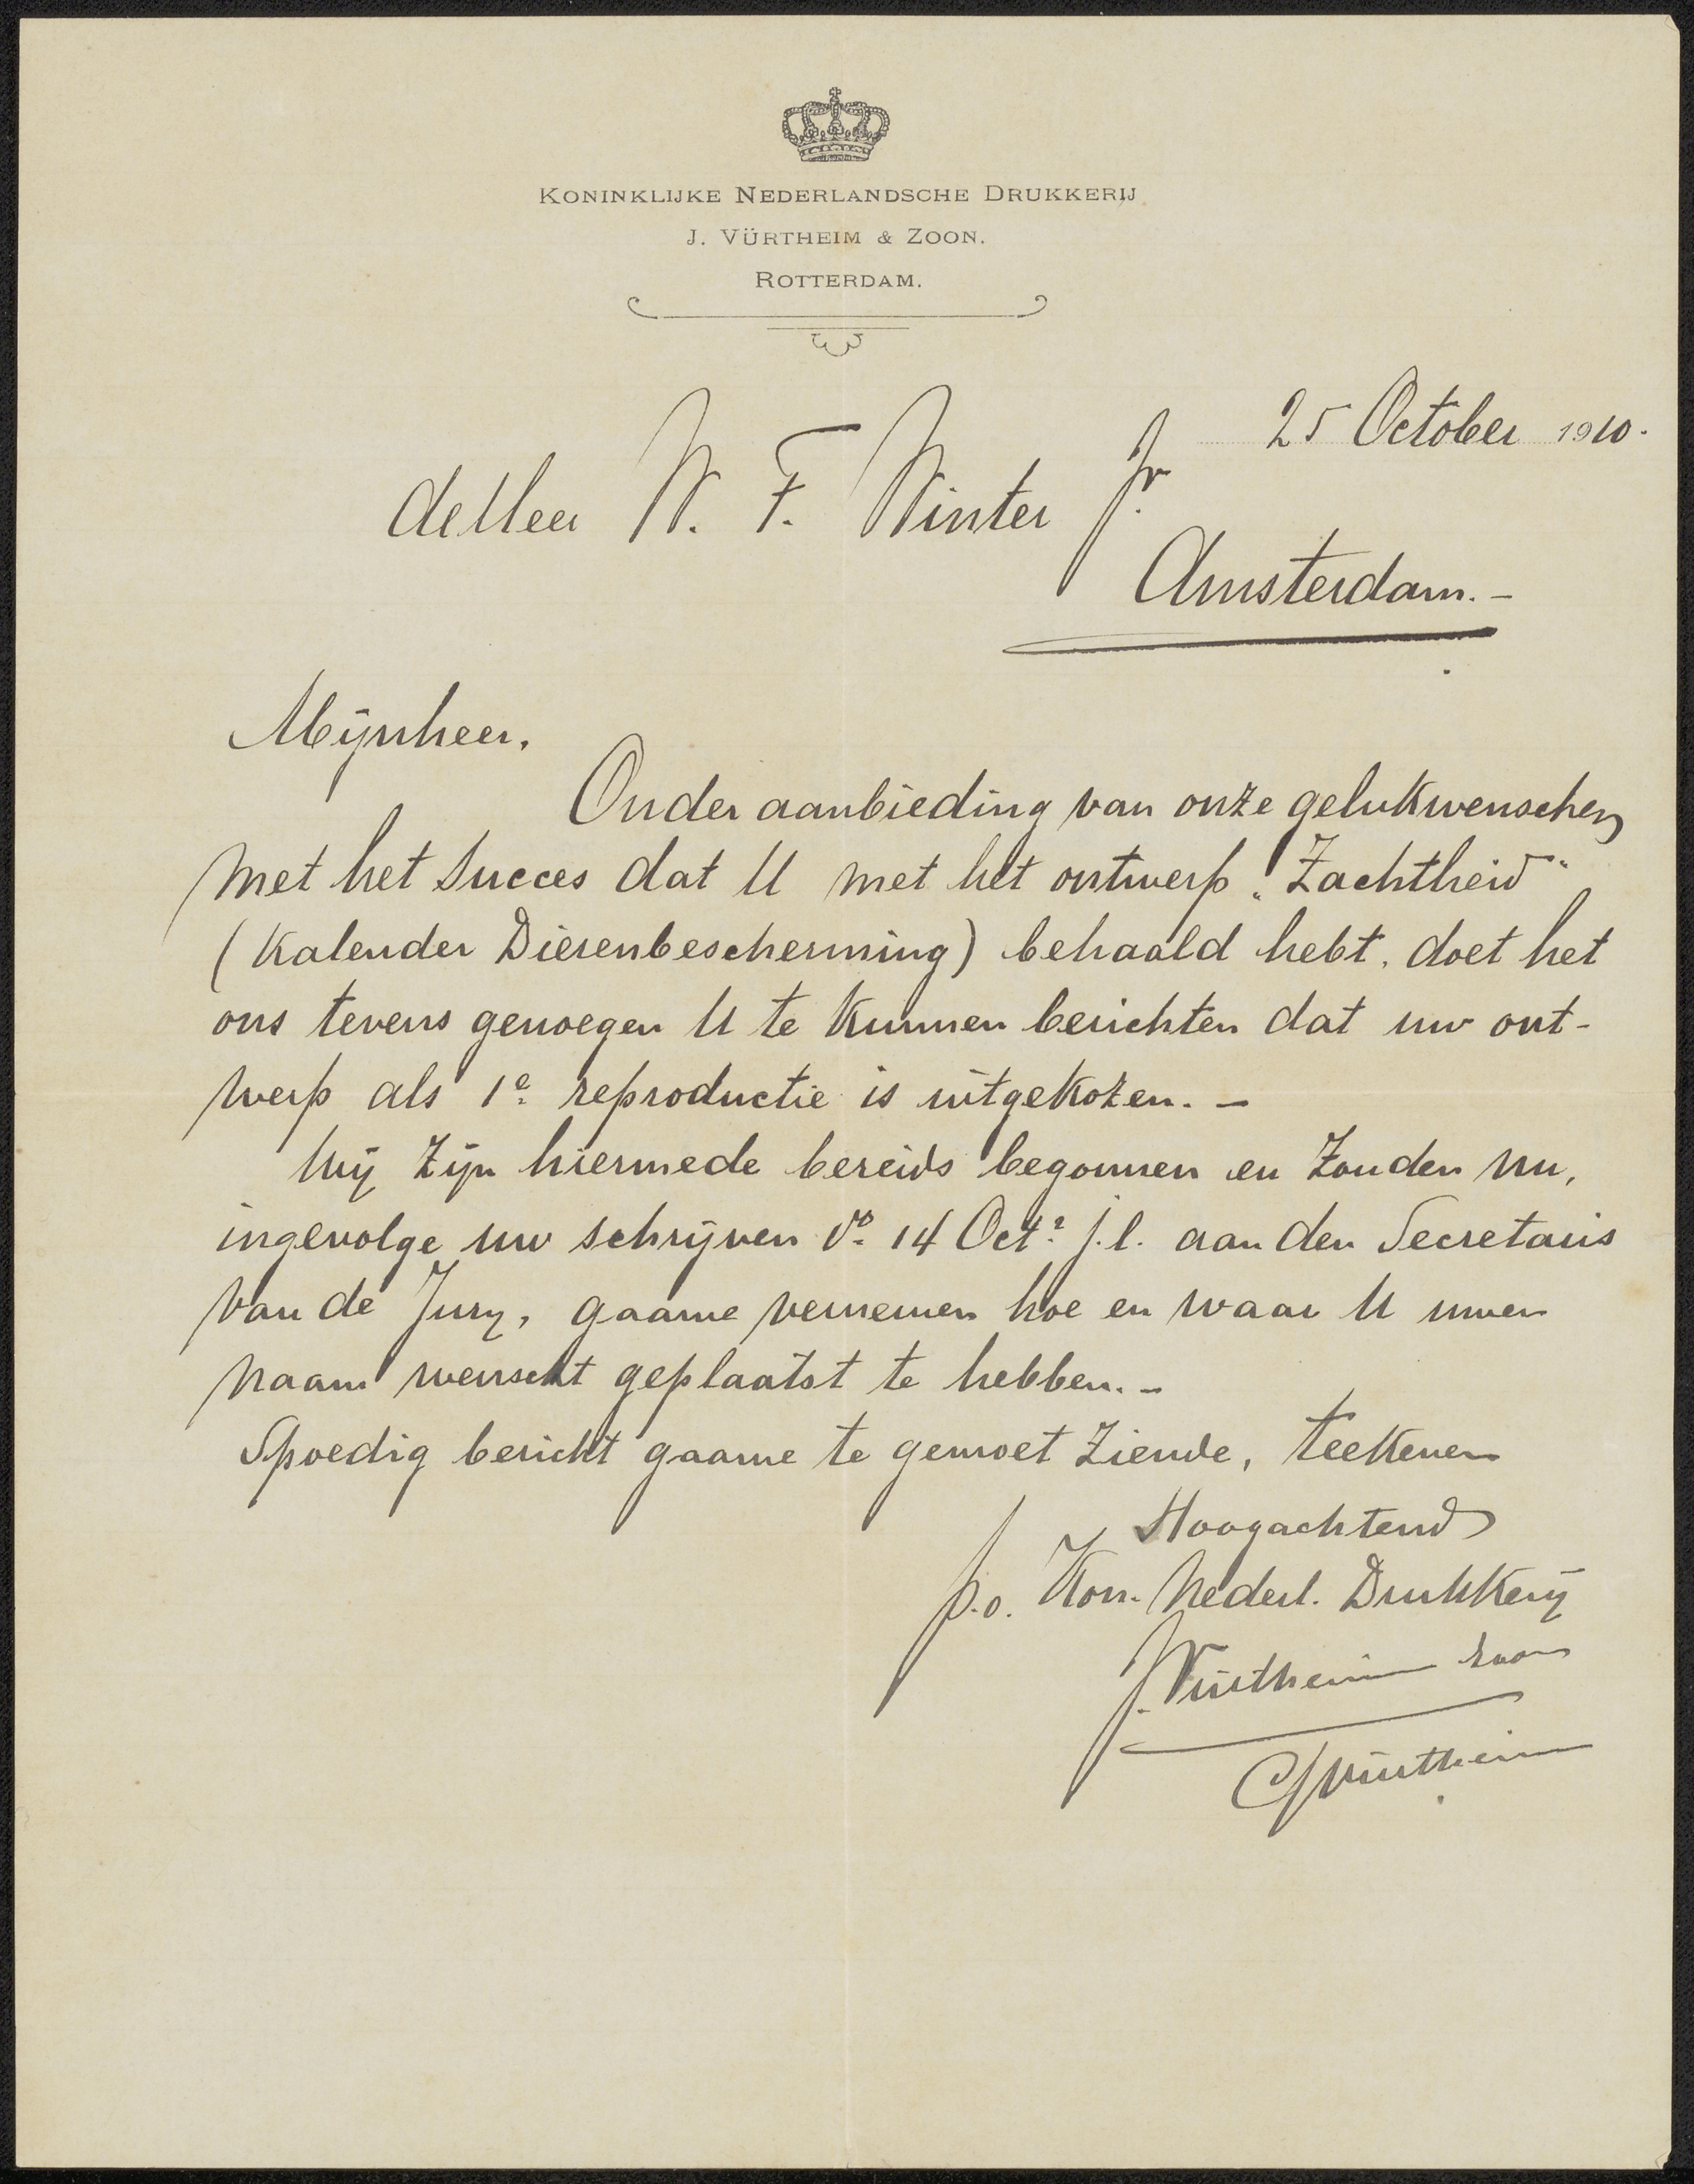 KONINKLIJKE NEDERLANDSCHE DRUKKERIJ
J. VÜRTHEIM & ZOON.
ROTTERDAM.
25 October 1910.
de Heer W. F. Winter Jr.
Amsterdam.-
Mijnheer,
Onder aanbieding van onze gelukwenschen
met het succes dat U met het ontwerp „Zachtheid"
(Kalender Dierenbescherming) behaald hebt, doet het
ons tevens genoegen U te kunnen berichten dat uw ont-
werp als 1e reproductie is uitgekozen. -
Wij zijn hiermede bereids begonnen en zouden nu,
ingevolge uw schrijven do. 14 Oct. j.l. aan den Secretaris
van de Jury, gaarne vernemen hoe en waar U uwen
naam wenscht geplaatst te hebben. -
Spoedig bericht gaarne te gemoet ziende, teekenen
Hoogachtend
p.o. Kon. Nederl. Drukkerij
J. Vürtheim Zoon
Vürtheim